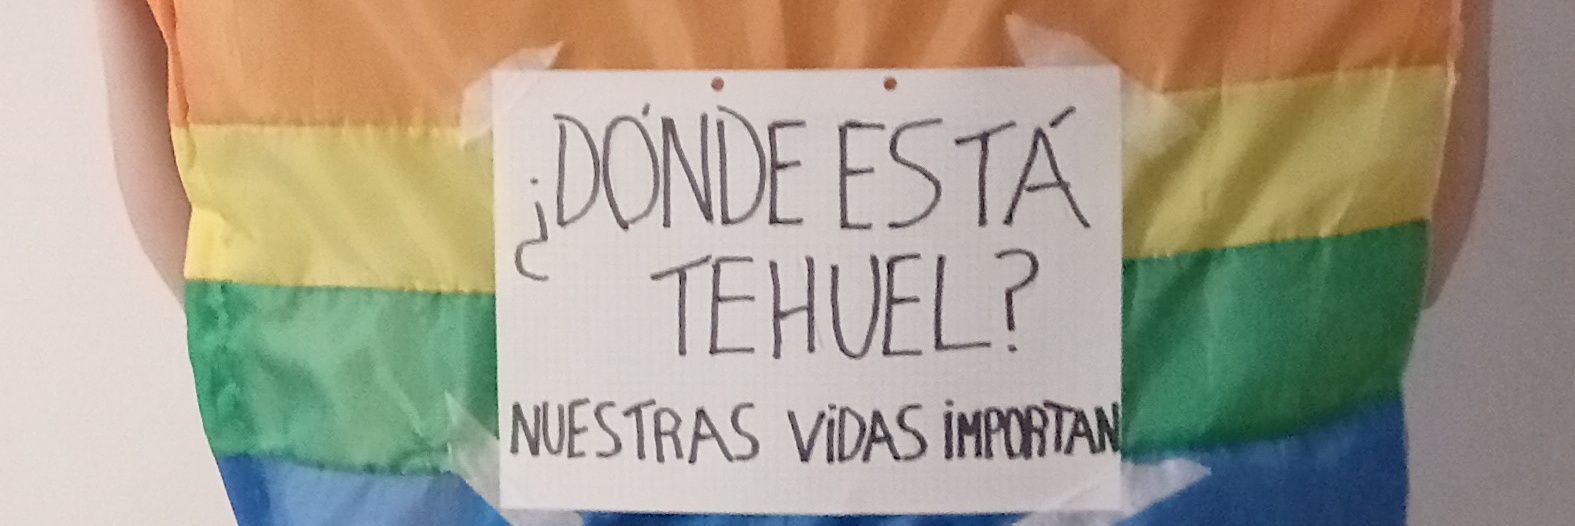 ¿DÓNDE ESTÁ
TEHUEL?
NUESTRAS VIDAS IMPORTAN